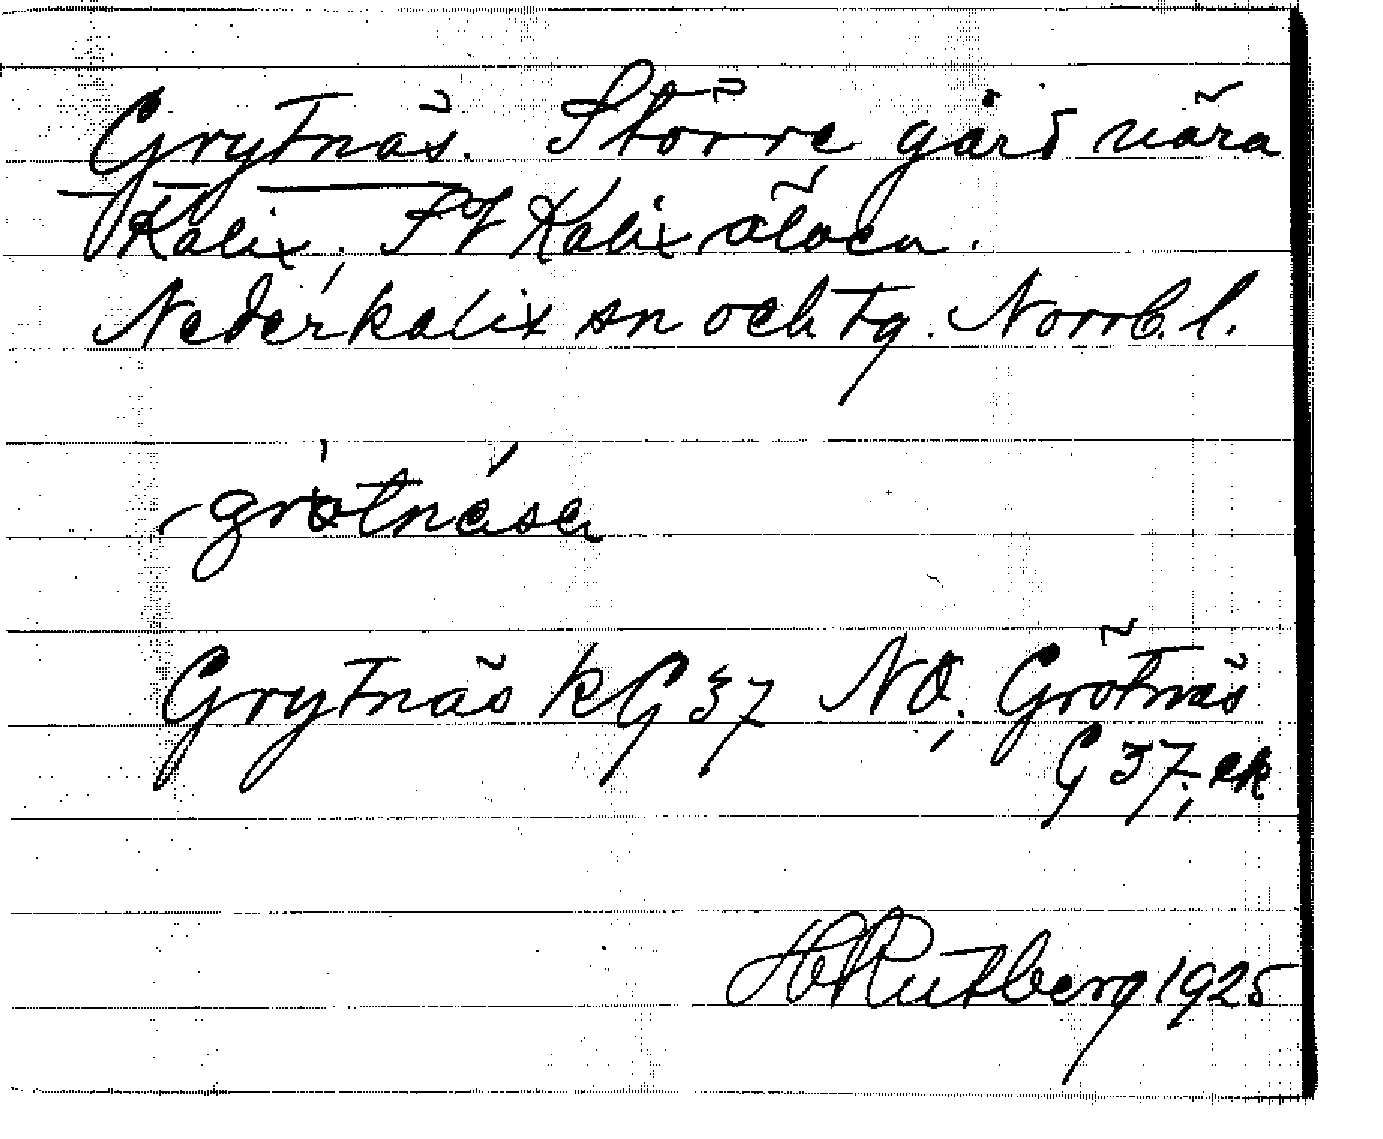 Grytnäs. Större gård nära
Kalix, SV Kalix älven.
Nederkalix sn och tg. Norrb. l.
grötnäsa
Grytnäs kG 37 NO, Grötnäs
G 37, ek
H Rutberg 1925